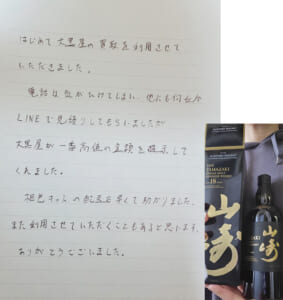 はじめて大黒屋の買取を利用させて
いただきました。
電話は気がひけてしまい、他にも何社か
LINEで見積りしてもらいましたが
大黒屋が一番高値の金額を提示して
くれました。
梱包キットの配送も早くて助かりました。
また利用させていただくこともあると思います。
ありがとうございました。
YAMAZAKI
18
山崎
山崎